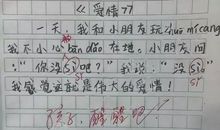 《爱情》
一天,我和小朋友玩zhuō mí cáng
我不小心bàn dǎo在地。小朋友问
:“你没sǐ吧?”我说:“没sǐ”
我感觉这就是伟大的爱情!
孩子,醒醒吧!